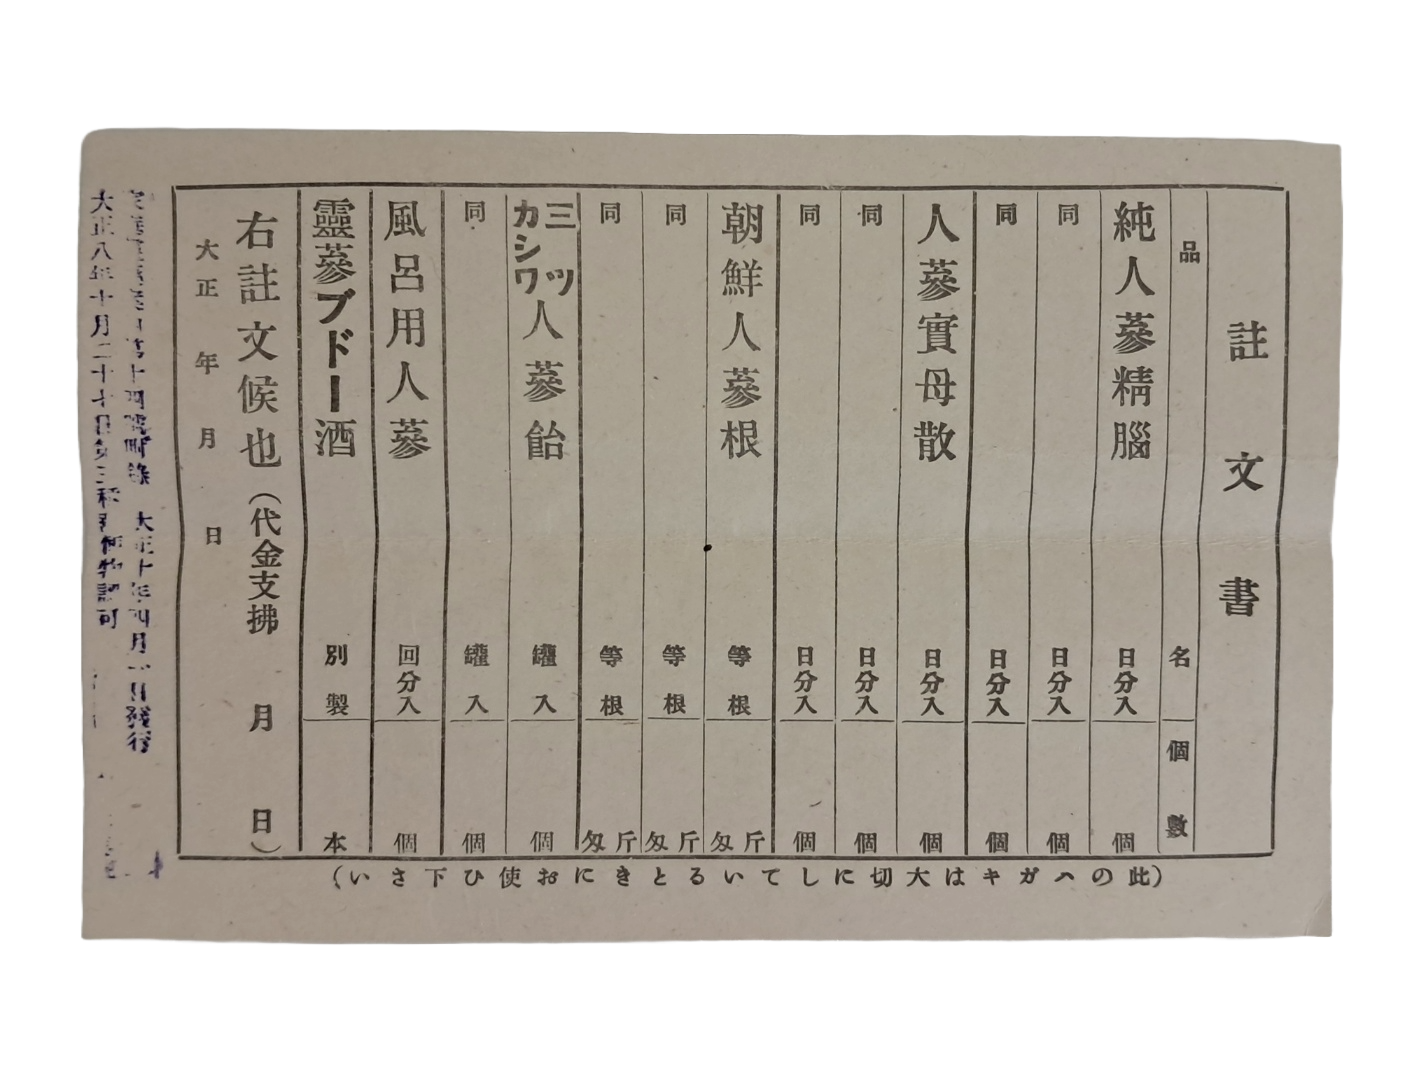 註文書
品名 個數
純人蔘精腦 日分入 個
同 日分入 個
同 日分入 個
人蔘實母散 日分入 個
同 日分入 個
同 日分入 個
朝鮮人蔘根 等根 斤匁
同 等根 斤匁
同 等根 斤匁
三ツカシワ人蔘飴 罐入 個
同 罐入 個
風呂用人蔘 回分入 個
靈蔘ブドー酒 別製 本
右註文候也(代金支拂 月 日)
大正 年 月 日
(此のハガキは大切にしているときにお使ひ下さい)
第十四號附錄 大正十年四月一日發行
大正八年十月二十七日第三種郵便物認可